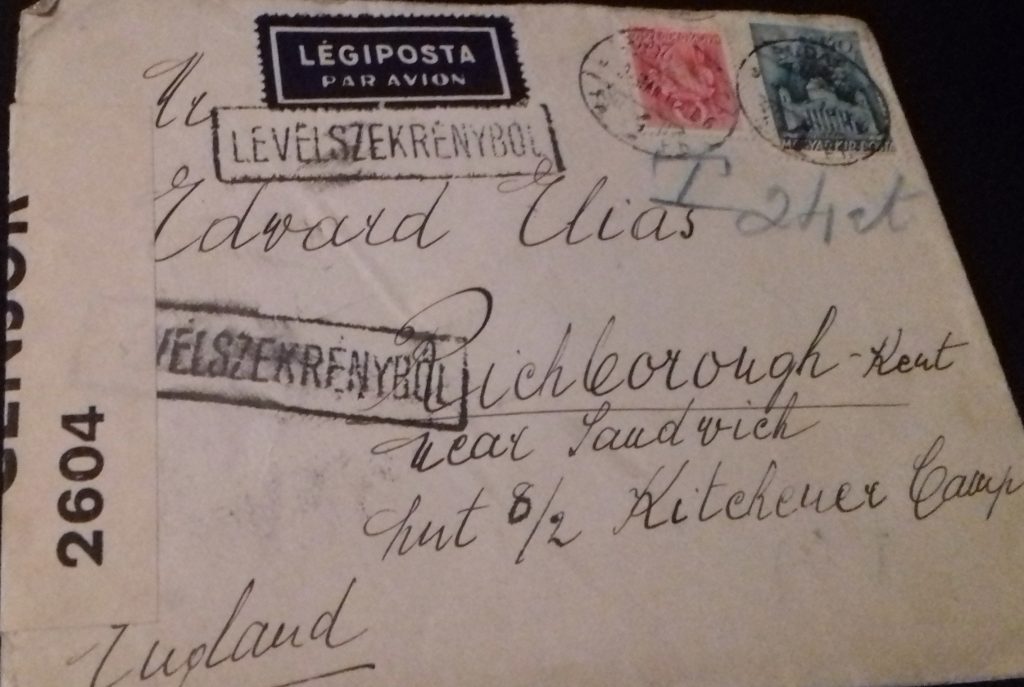 LÉGIPOSTA
PAR AVION
LEVÉLSZEKRÉNYBŐL
Mr
Edward Elias
T
VÉLSZEKRÉNYBŐL
Richborough - Kent
near Sandwich
hut 8/2 Kitchener Camp
England
CENSOR
2604